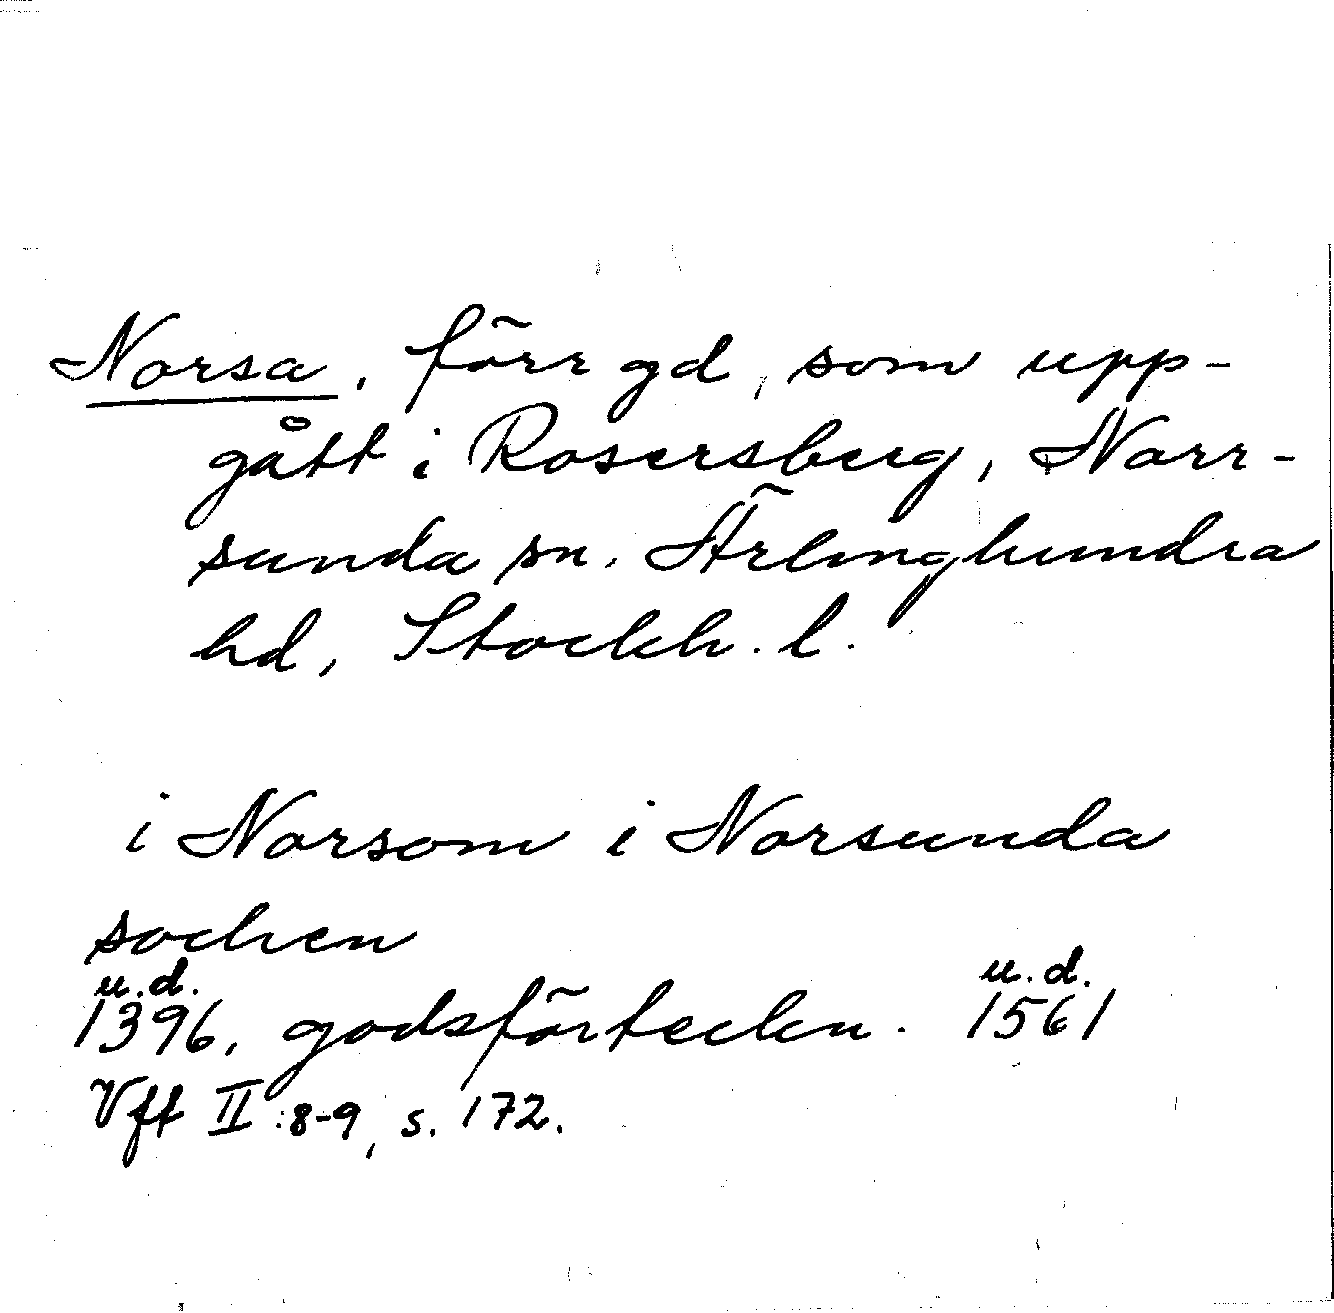 Norsa, förr gd, som upp-
gått i Rosersberg, Norr-
sunda sn. Ärlinghundra
hd, Stockh. l.
i Norsom i Norsunda
sochen
u.d. u.d.
1396, godsförteckn. 1561
Vft II:8-9, s. 172.